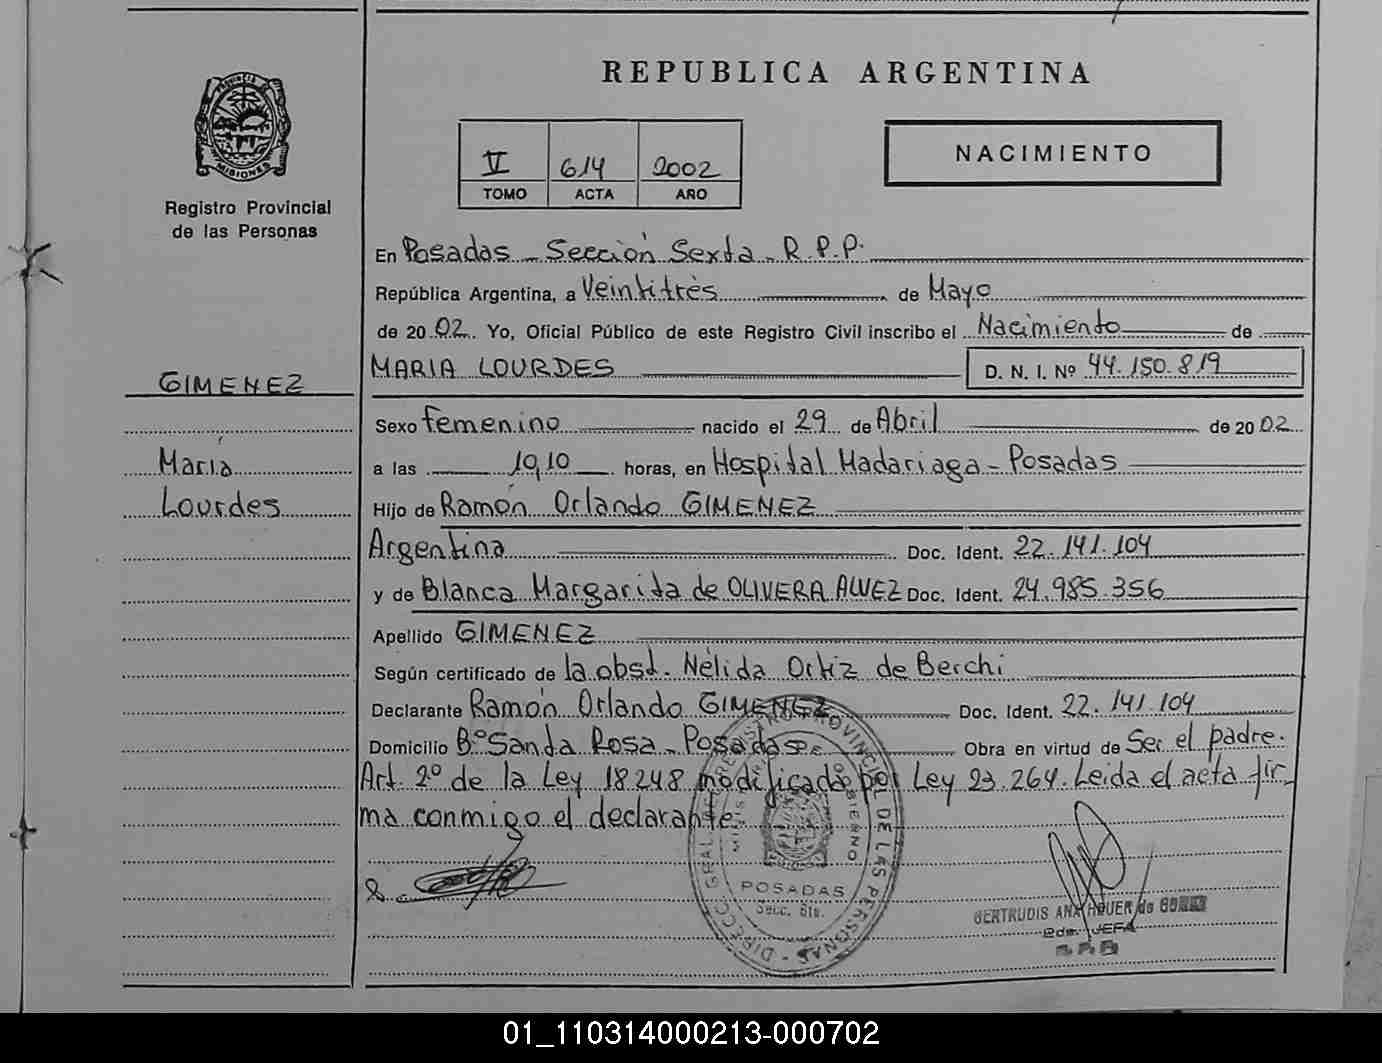 REPUBLICA ARGENTINA
PROVINCIA DE MISIONES
Registro Provincial
de las Personas
V 614 2002
TOMO ACTA AÑO
NACIMIENTO
En Posadas - Sección Sexta - R.P.P.
República Argentina, a Veintitrés de Mayo
de 2002. Yo, Oficial Público de este Registro Civil inscribo el Nacimiento de
MARIA LOURDES D. N. I. Nº 44.150.819
GIMENEZ
María
Lourdes
Sexo femenino nacido el 29 de Abril de 2002
a las 10,10 horas, en Hospital Madariaga - Posadas
Hijo de Ramón Orlando GIMENEZ
Argentina Doc. Ident. 22.141.104
y de Blanca Margarita de OLIVERA ALVEZ Doc. Ident. 24.985.356
Apellido GIMENEZ
Según certificado de la obst. Nélida Ortiz de Berchi
Declarante Ramón Orlando GIMENEZ Doc. Ident. 22.141.104
Domicilio Bº Santa Rosa - Posadas Obra en virtud de Ser el padre.
Art. 2º de la Ley 18248 modificada por Ley 23.264. Leida el acta fir-
ma conmigo el declarante.
DIRECC. GRAL. REGISTRO PROVINCIAL DE LAS PERSONAS
MINISTERIO DE GOBIERNO
POSADAS
Secc. 6ta.
GERTRUDIS ANA de
JEFA
01_110314000213-000702